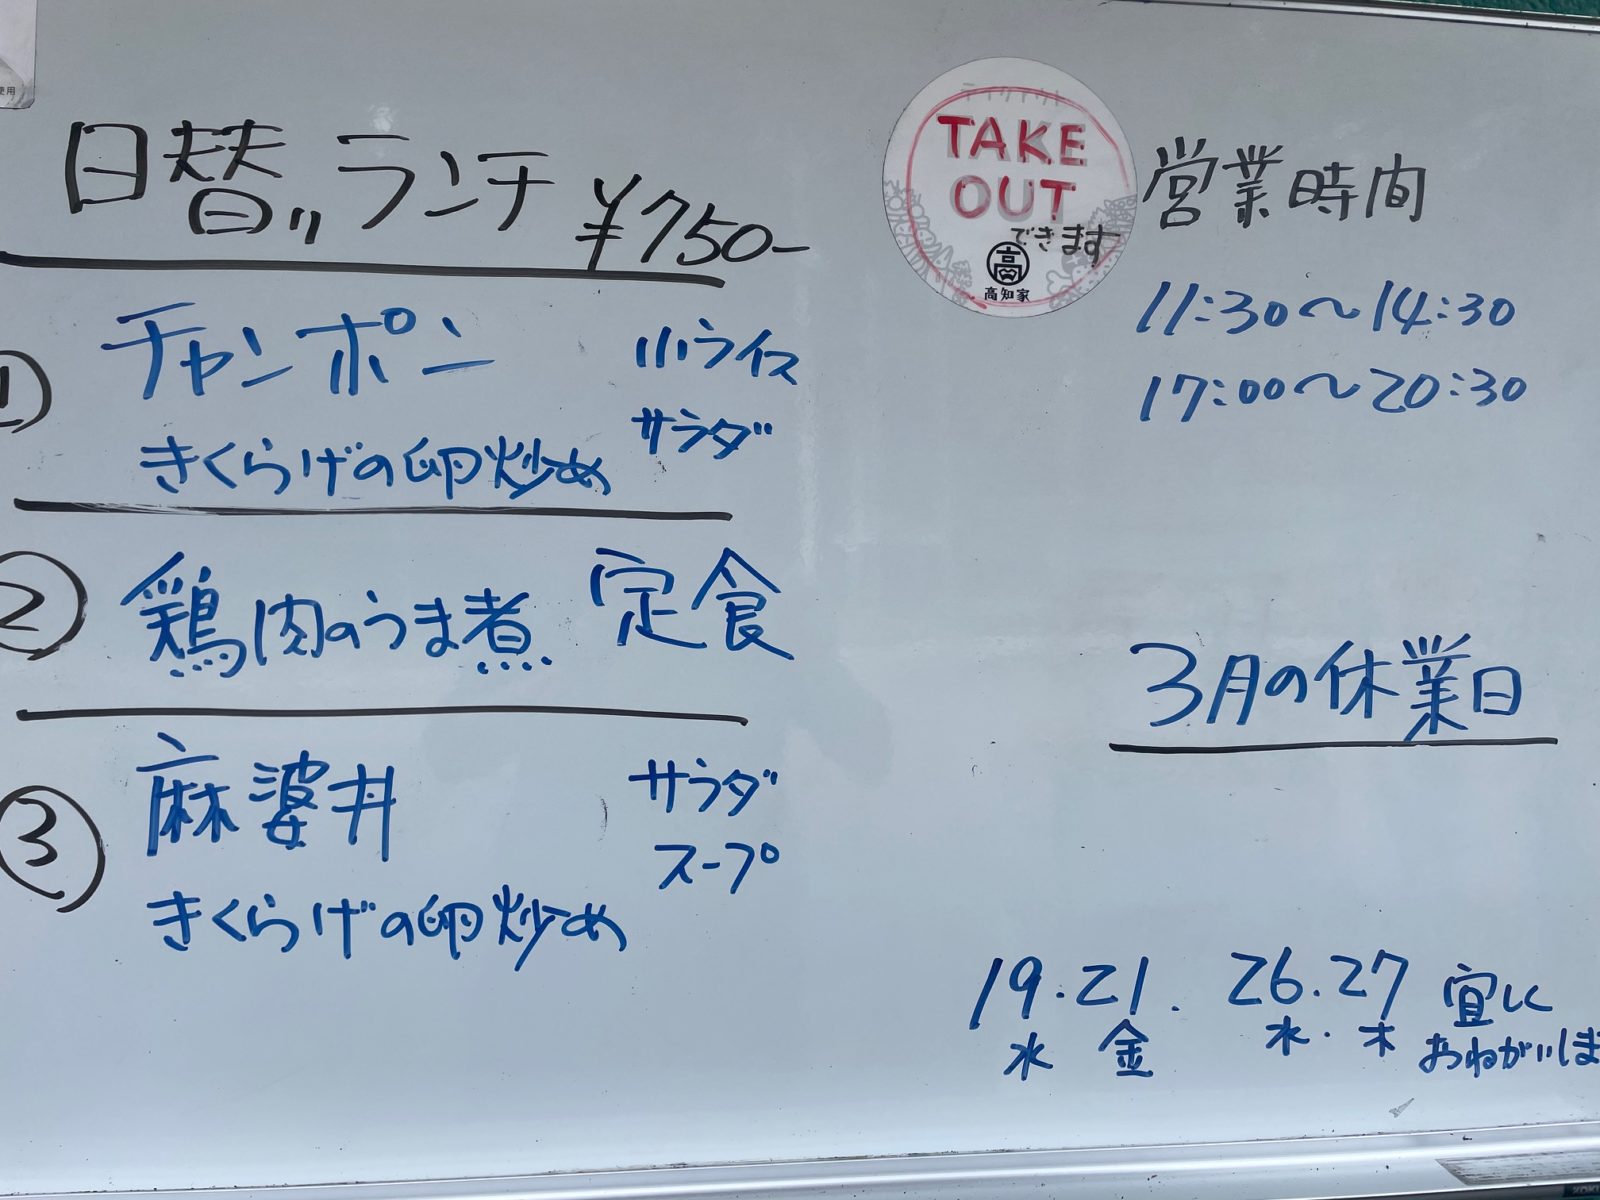 使用
日替りランチ ¥750-
① チャンポン 小ライス
サラダ
きくらげの卵炒め
② 鶏肉のうま煮 定食
③ 麻婆丼 サラダ
スープ
きくらげの卵炒め
TAKE
OUT
できます
高
高知家
営業時間
11:30〜14:30
17:00〜20:30
3月の休業日
19.21. 26.27 宜しく
水 金 水.木 おねがいしま